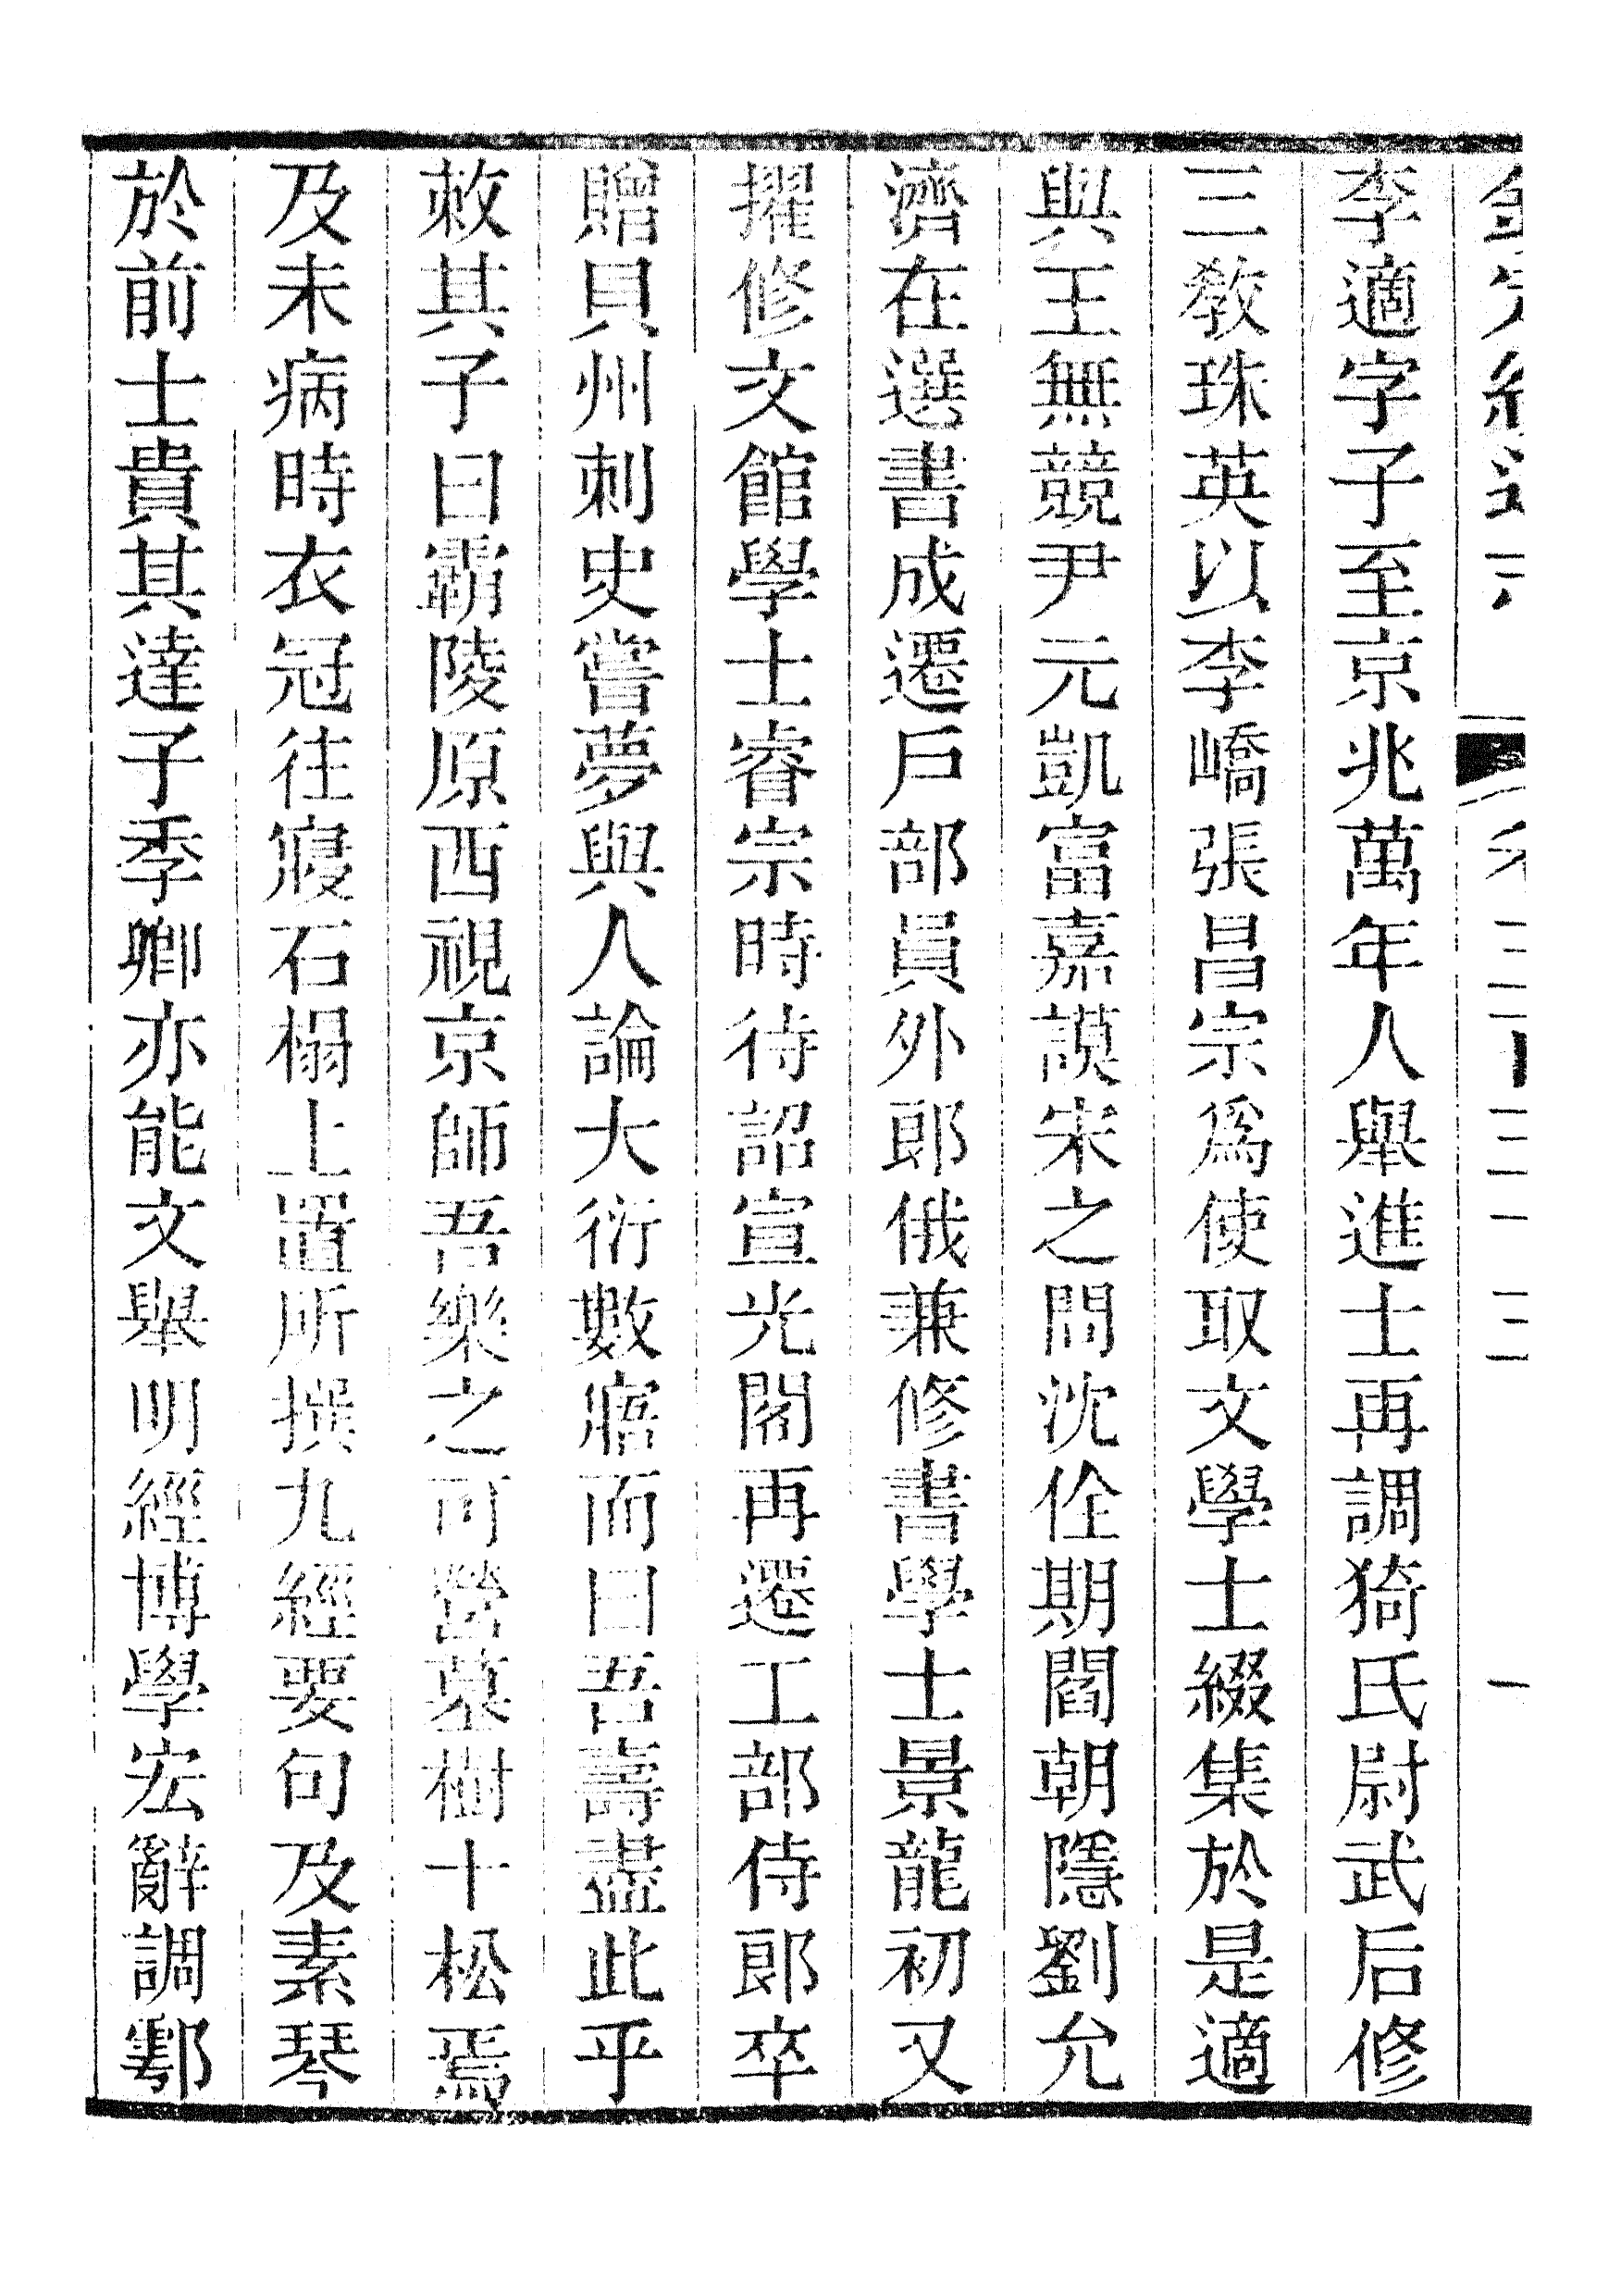 李適字子至京兆萬年人舉進士再調猗氏尉武后修
三敎珠英以李嶠張昌宗爲使取文學士綴集於是適
與王無競尹元凱富嘉謨宋之問沈佺期閻朝隱劉允
濟在選書成遷戶部員外郎俄兼修書學士景龍初又
擢修文館學士睿宗時待詔宣光閣再遷工部侍郎卒
贈貝州刺史嘗夢與人論大衍數寤而曰吾壽盡此乎
敕其子曰霸陵原西視京師吾樂之可營墓樹十松焉
及未病時衣冠往寢石榻上置所撰九經要句及素琴
於前士貴其達子季卿亦能文舉明經博學宏辭調鄠